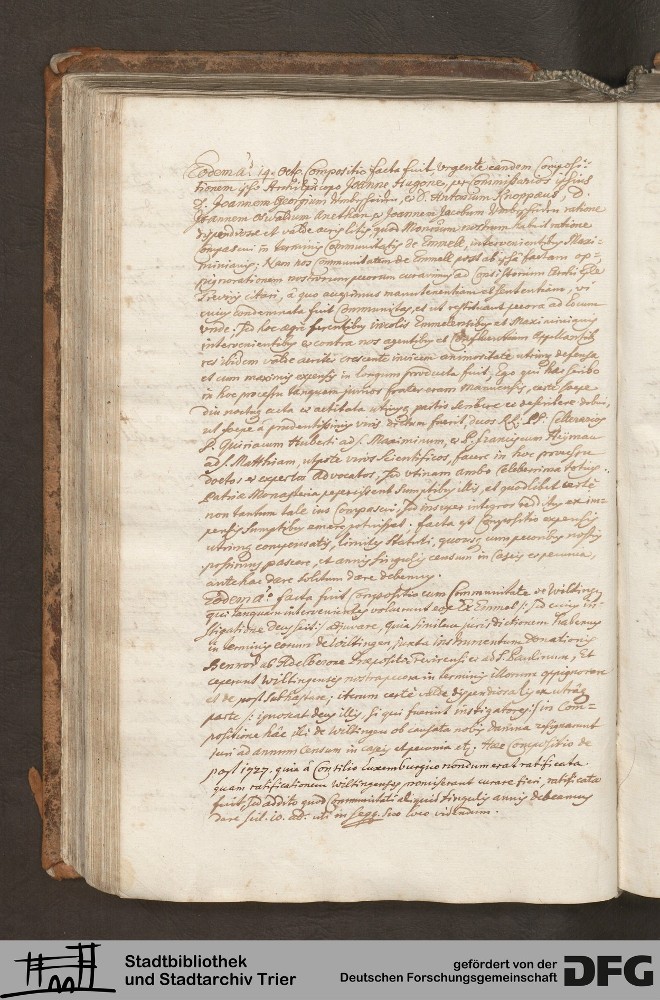 Eodem A.o 14. Octb. Compositio facta fuit, urgente eandem Composi=
tionem ipso Archiepiscopo Joanne Hugone, per Commissarios ipsius
D. Joannem Georgium, et D. Antonium Knoppaeus, D.
Joannem Oswaldum Anethan et Joannem Jacobum ratione
dispendiosae et valde acris litis quod Monrium nostrum habuit ratione
compascui in terminis Communitatis de Emmell, intervenientibus Maxi=
minianis; Nam nos Communitatem de Emmell post ab ipsa factam op=
pignorationem nostrorum pecorum curavimus ad Consistorium Archi Eple
Treviris citari, a quo accepimus manutenentiam et sententiam, vi
cuius condemnata fuit Communitas, et ut restituant pecora ad locum
unde; sed hoc aegre ferentibus incolis Emmelensibus et Maximinianis
intervenientibus et contra nos agentibus et Confluentiam appellantibus
res ibidem valde acriter crescente invicem animositate utrimque defensa
et cum maximis expensis in longum producta fuit, Ego qui haec scribo
in hoc processu tanquam junior frater eram manuensis, certe saepe
diu noctuque acta et actitata utriusque partis scribere et describere debui,
ut saepe a prudentissimis viris dictum fuerit, duos RR. PP. Cellerarios
P. Quiriacum Huberti ad S. Maximinum, et P. Franciscum Heyman
ad S. Matthiam, utpote viros scientificos, fuere in hoc processu
doctos et expertos Advocatos, sed utinam ambo celeberrima totius
Patriae Monasteria pepercissent sumptibus illis, et quodlibet certe
non tantum tale ius Compascui, sed insuper integros redditus ex im=
pensis sumptibus emere potuisset. facta est Compositio expensis
utrimque compensatis, limites statuti, quousque cum pecoribus nostris
possimus pascere, et annis singulis censum in caseis et pecunia,
antehac dare solitum dare debemus.
Eodem A.o facta fuit Compositio cum Communitate de Wiltingen
qui tanquam intervenientes voluerunt eos ex Emmel /: sed cuius in=
stigatione Deus scit :/ adjuvare, quia similem juris dictionem habemus
in terminis eorum de Wiltingen juxta instrumentum donationis
Benrod ab Adelberone Praeposito Trevirensi et ad S. Paulinum, Et
ceperunt Wiltingenses nostra pecora in terminis illorum oppignorare
et de post subhastare; iterum certe valde dispendiosa lis ex utraque
parte /: ignoscat Deus illis, si qui fuerint instigatores :/ in Com=
positione hac illi de Wiltingen ob causata nobis damna resignarunt
suum ad annum censum in caseis et pecunia etc; Haec Compositio de
post 1727. quia a Consilio Luxemburgico nondum erat ratificata.
quam ratificationem Wiltingenses promiserant curare fieri, ratificata
fuit, sed addito quod Communitati aliquid singulis annis debeamus
dare scil. 10. ad. uti in seqq. suo loco videndum.
Stadtbibliothek
und Stadtarchiv Trier
gefördert von der
Deutschen Forschungsgemeinschaft
DFG